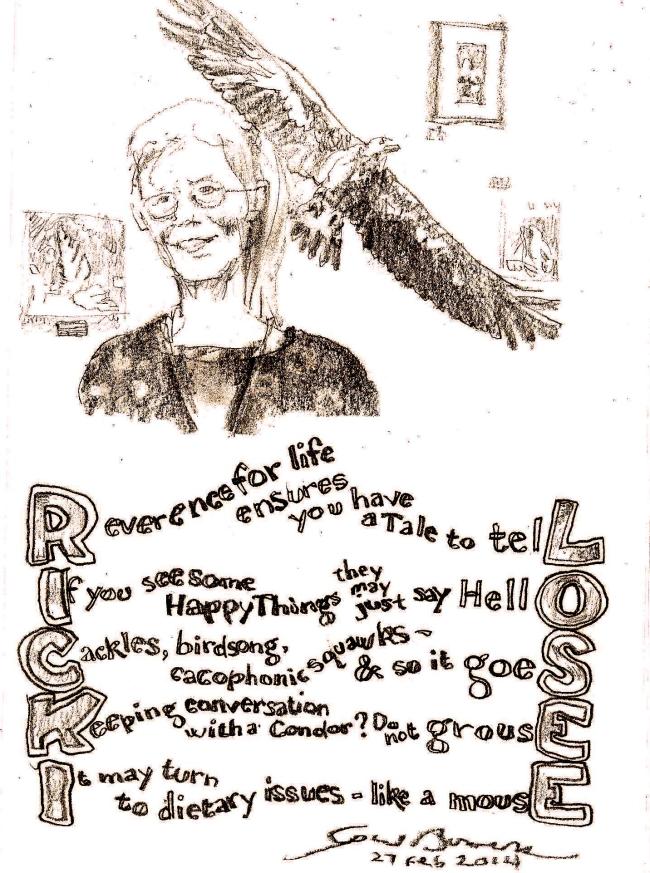 Reverence for life
ensures
you have
a Tale to telL
If you see some
Happy Things they
may
just say HellO
Cackles, birdsong,
cacophonic squawks -
& so it goeS
Keeping conversation
with a Condor? Do
not grousE
It may turn
to dietary issues - like a mousE
27 Feb 2014